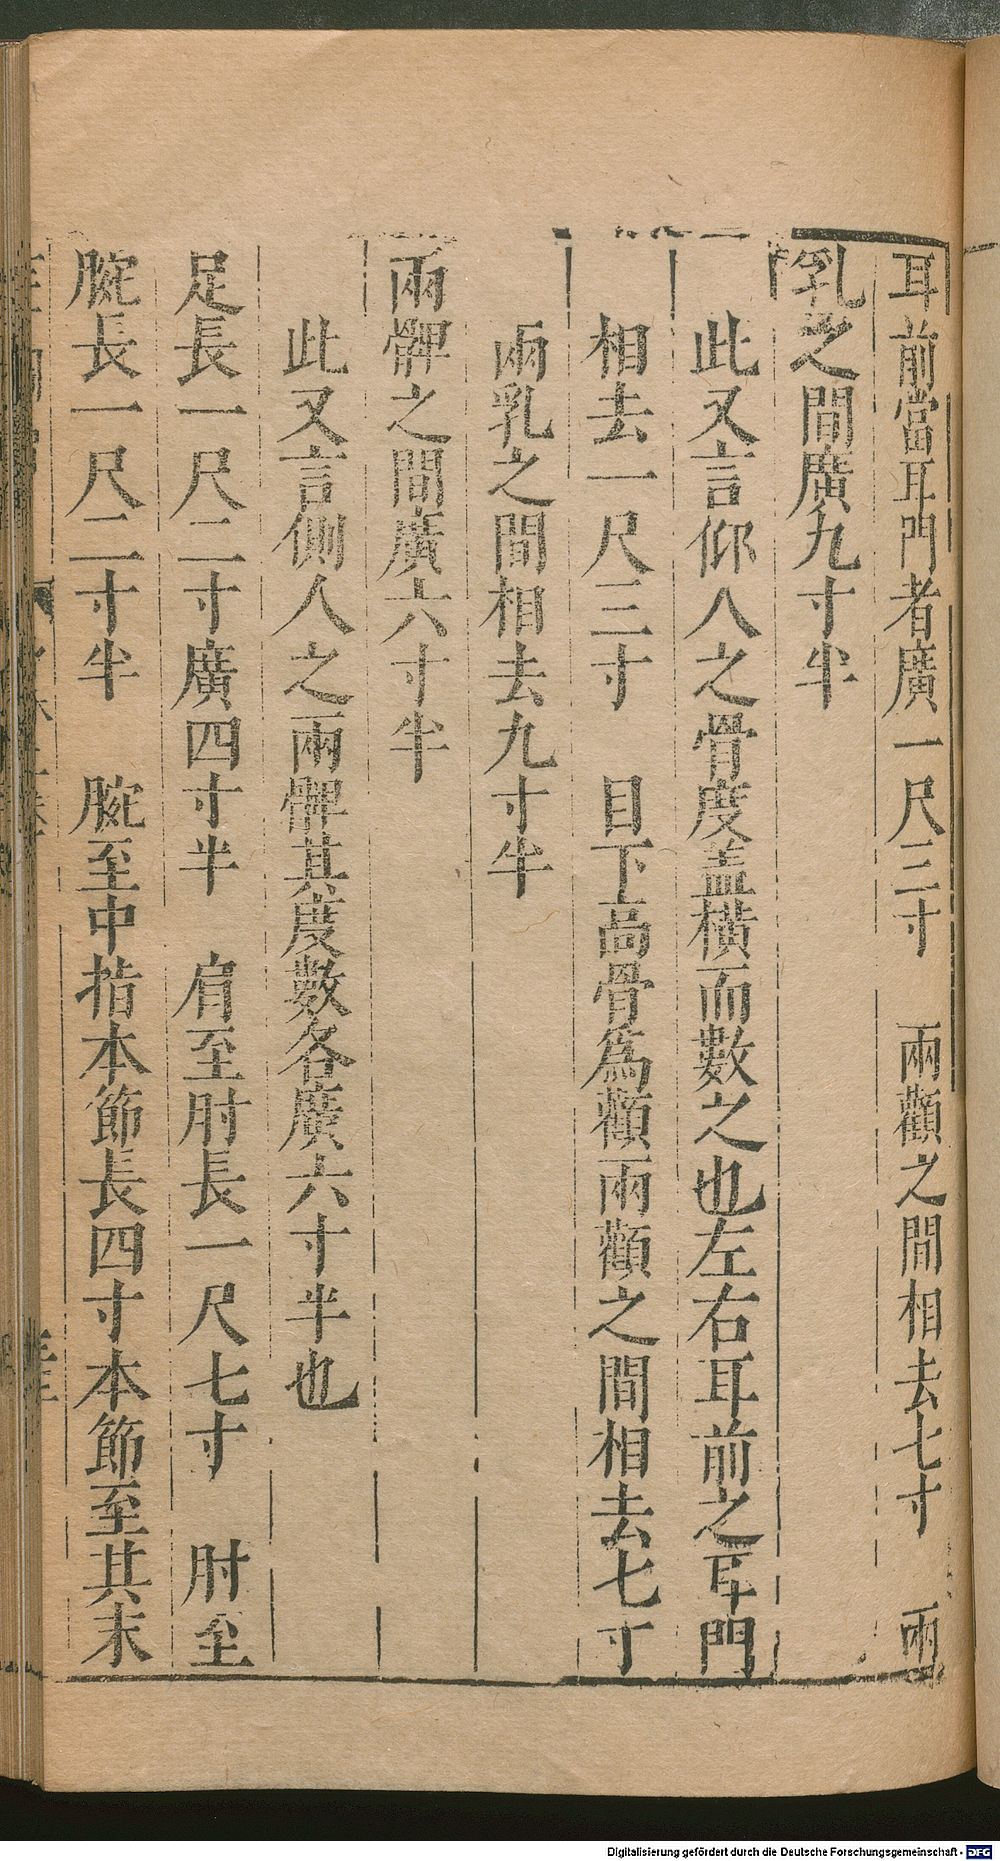 耳前當耳門者廣一尺三寸　兩顴之間相去七寸　兩
乳之間廣九寸半
此又言仰人之骨度蓋橫而數之也左右耳前之耳門
相去一尺三寸　目下高骨爲顴兩顴之間相去七寸
兩乳之間相去九寸半
兩髀之間廣六寸半
此又言側人之兩髀其度數各廣六寸半也
足長一尺二寸廣四寸半　肩至肘長一尺七寸　肘至
腕長一尺二寸半　腕至中指本節長四寸本節至其末
Digitalisierung gefördert durch die Deutsche Forschungsgemeinschaft - DFG